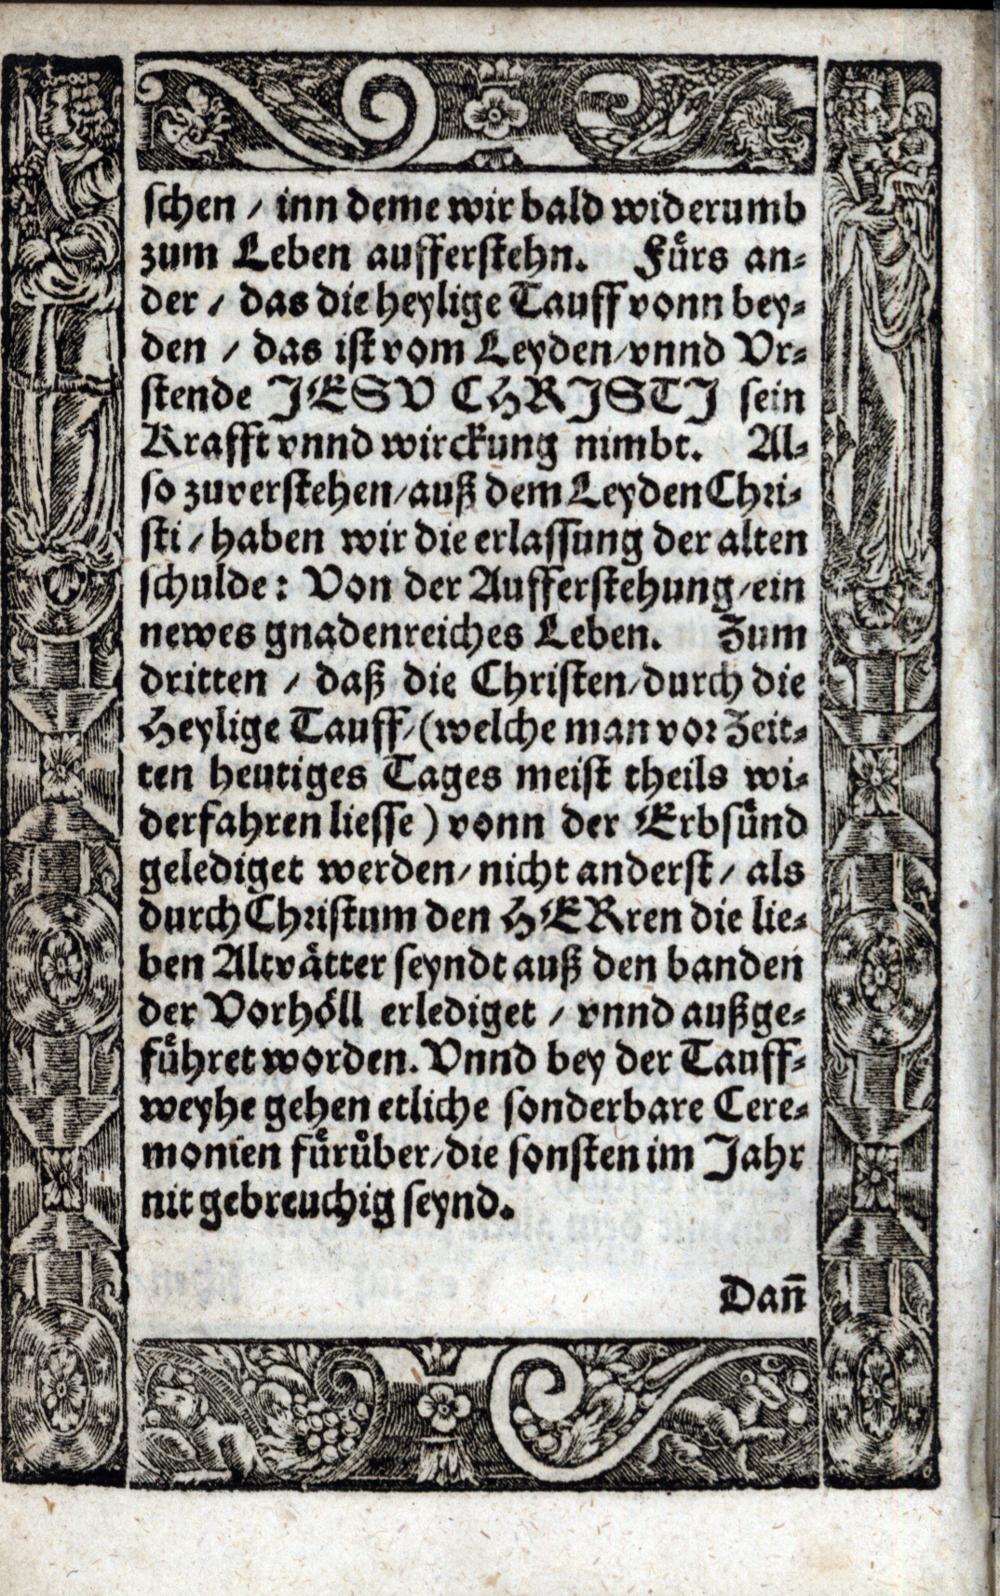 schen / inn deme wir bald widerumb
zum Leben aufferstehn. Fuͤrs an⸗
der / das die heylige Tauff vonn bey⸗
den / das ist vom Leyden / vnnd Vr⸗
stende JESV CHRJSTJ sein
Krafft vnnd wirckung nimbt. Al⸗
so zuverstehen / auß dem Leyden Chri⸗
sti / haben wir die erlassung der alten
schulde: Von der Aufferstehung / ein
newes gnadenreiches Leben. Zum
dritten / daß die Christen / durch die
Heylige Tauff / (welche man vor Zeit⸗
ten heutiges Tages meist theils wi⸗
derfahren liesse) vonn der Erbsuͤnd
gelediget werden / nicht anderst / als
durch Christum den HERren die lie⸗
ben Altvaͤtter seyndt auß den banden
der Vorhoͤll erlediget / vnnd außge⸗
fuͤhret worden. Vnnd bey der Tauff⸗
weyhe gehen etliche sonderbare Cere⸗
monien fuͤruͤber / die sonsten im Jahr
nit gebreuchig seynd.
Dañ